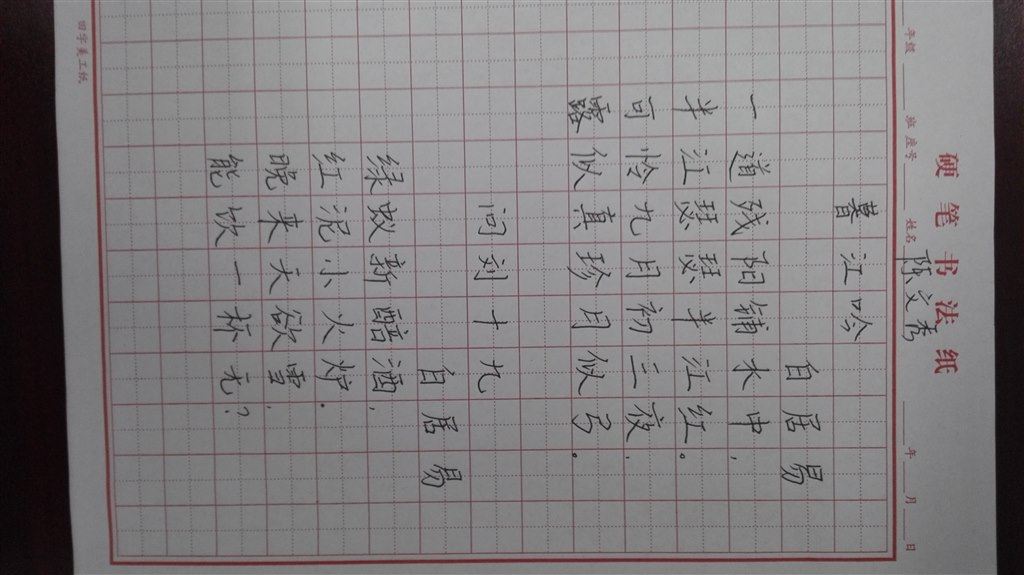 硬笔书法纸
年级 班 座号 姓名 陈文秀 年 月 日
暮江吟
白居易
一道残阳铺水中,
半江瑟瑟半江红。
可怜九月初三夜,
露似真珍月似弓。
问刘十九
白居易
绿蚁新醅酒,
红泥小火炉。
晚来天欲雪,
能饮一杯无?
田字美工纸